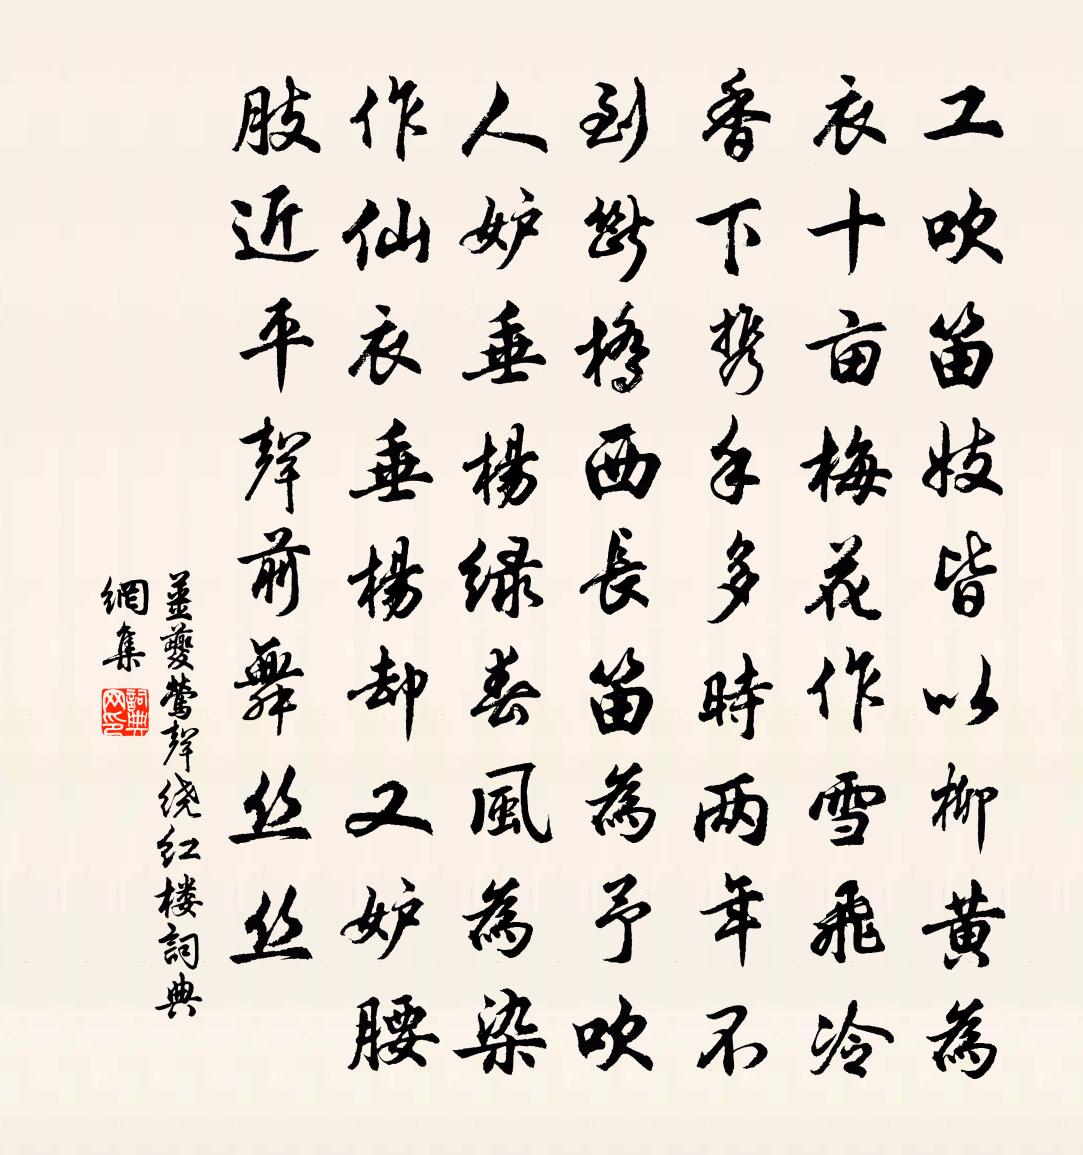 工吹笛妓皆以柳黄為
衣十亩梅花作雪飛冷
香下携手多時两年不
到斷橋西長笛為予吹
人妒垂楊緑春風為染
作仙衣垂楊却又妒腰
肢近平聲前舞丝丝
薑夔莺聲绕红楼詞典
網集
詞典网印